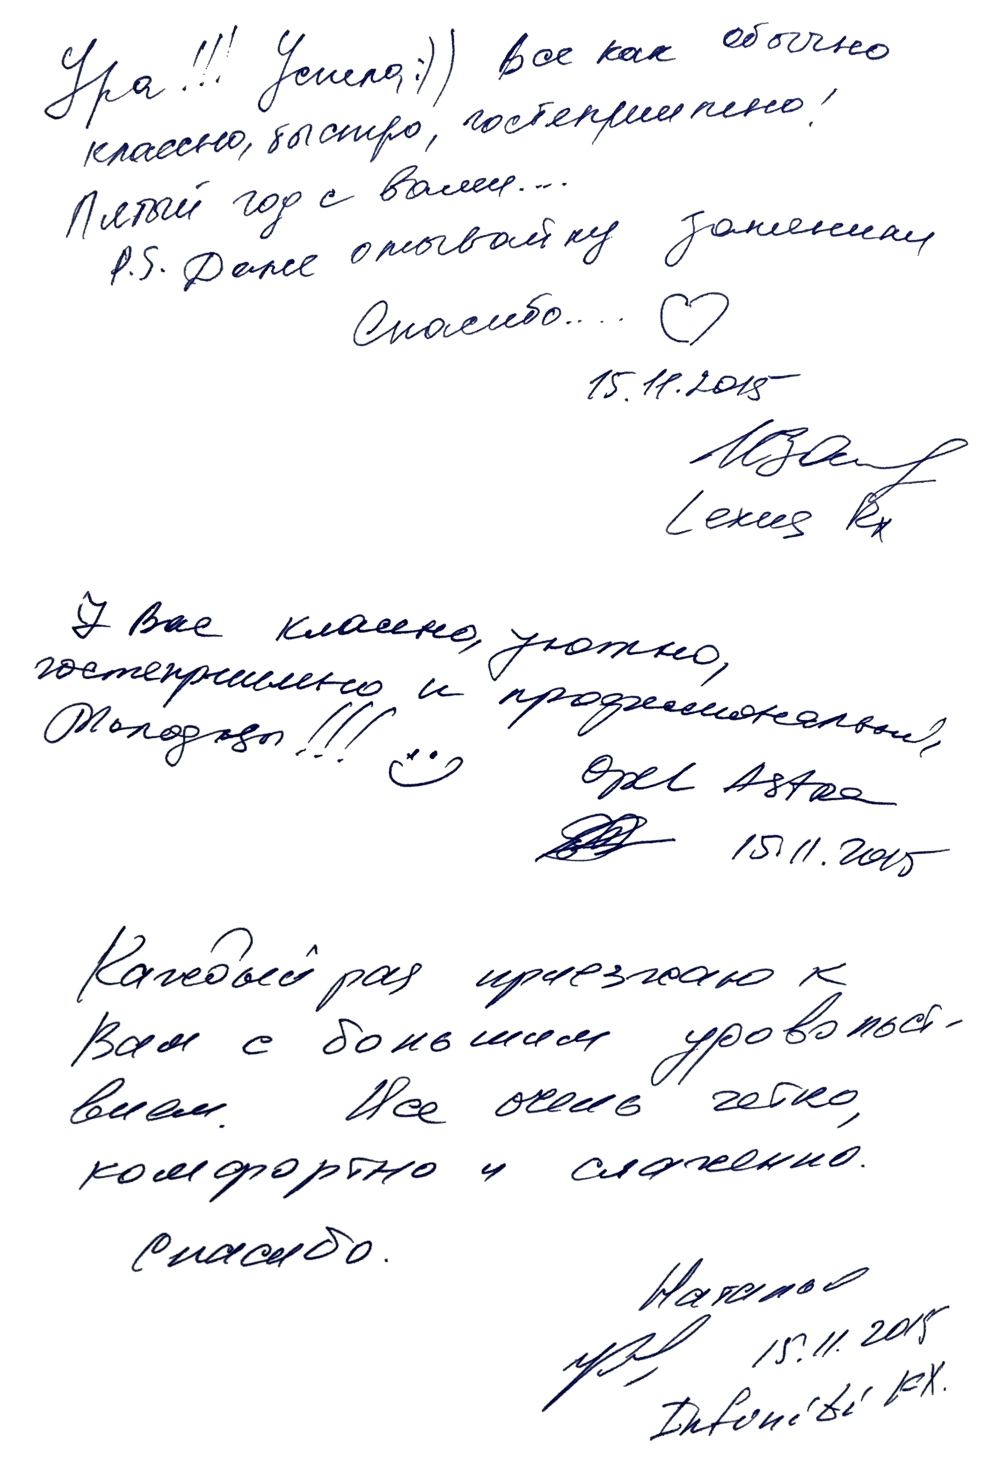 Ура!!! Успела:)) Все как обычно
классно, быстро, гостеприимно!
Пятый год с вами....
P.S. Даже омывайку заменили
Спасибо....
15.11.2015
Lexus Rx
У Вас классно, уютно,
гостеприимно и профессиональный,
Молодцы!!!
Opel Astra
15.11.2015
Каждый раз приезжаю к
Вам с большим удовольст-
вием. Все очень четко,
комфортно и слаженно.
Спасибо.
Наталья
15.11.2015
Infiniti FX.